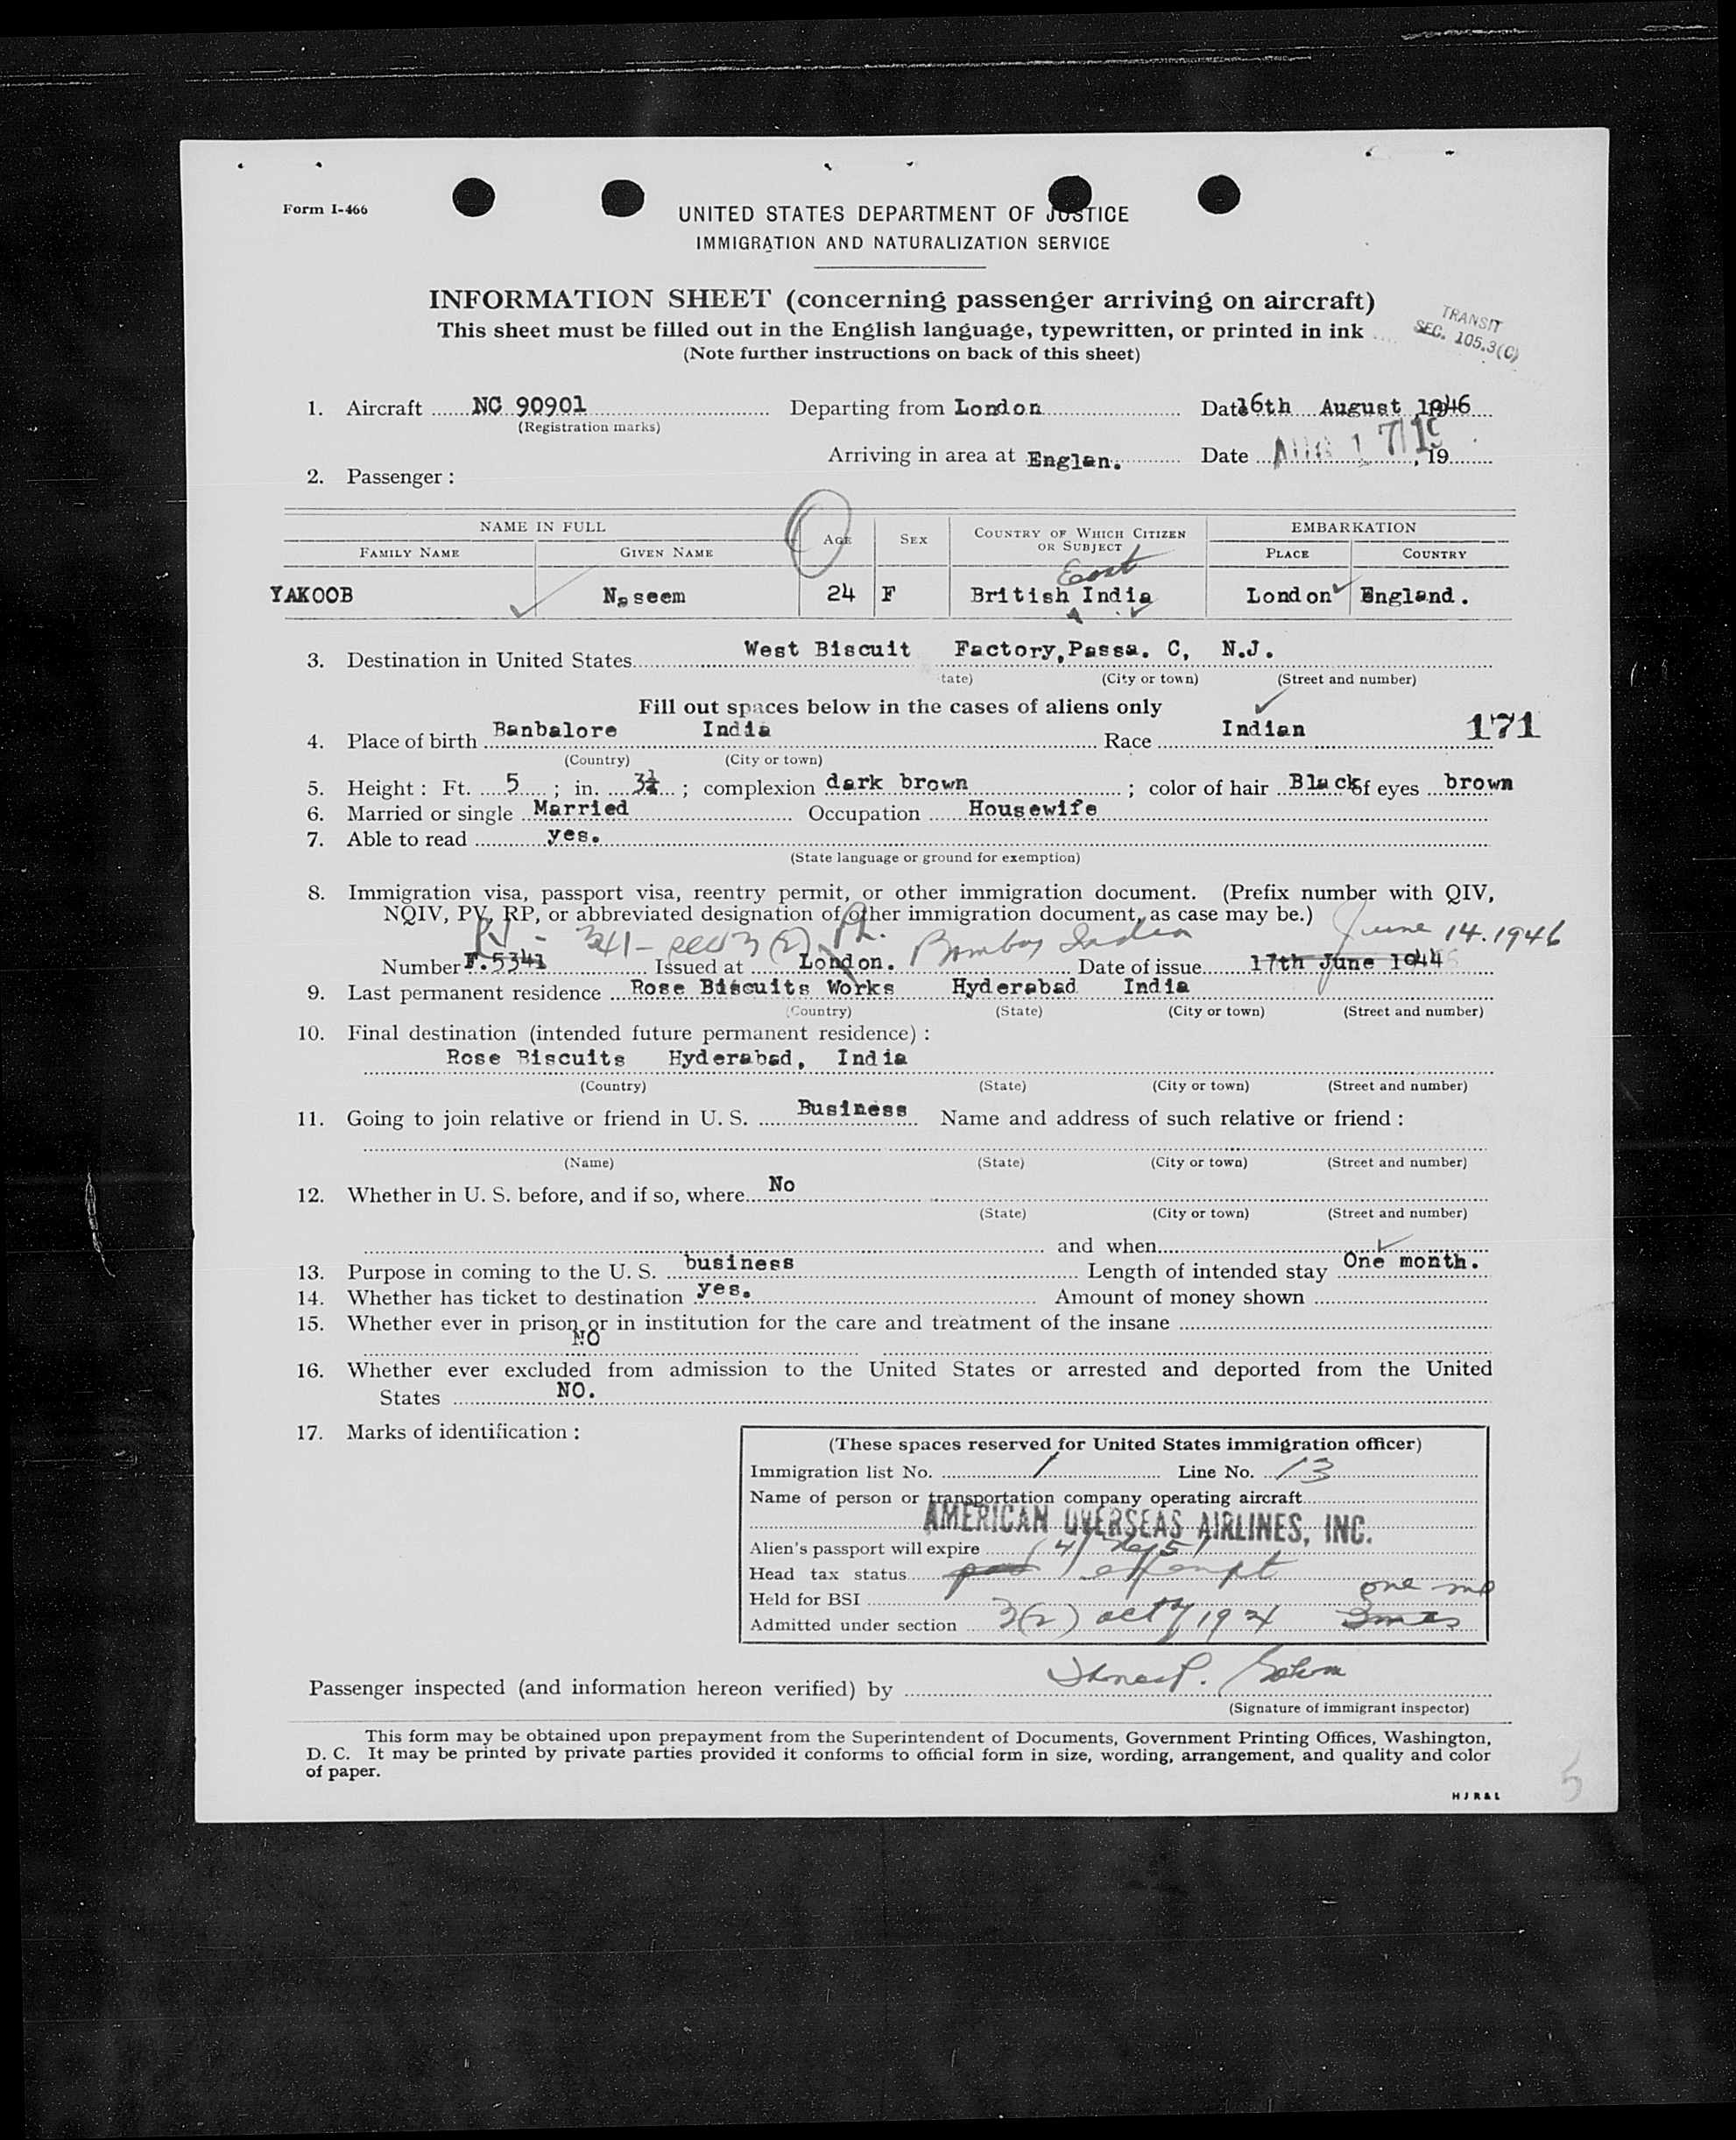 Form I-466
UNITED STATES DEPARTMENT OF JUSTICE
IMMIGRATION AND NATURALIZATION SERVICE
INFORMATION SHEET (concerning passenger arriving on aircraft)
This sheet must be filled out in the English language, typewritten, or printed in ink
(Note further instructions on back of this sheet)
TRANSIT
SEC. 105.3(C)
1. Aircraft NC 90901 Departing from London Date 16th August 1946
(Registration marks)
Arriving in area at Englan. Date AUG 17, 19
2. Passenger :
NAME IN FULL AGE SEX COUNTRY OF WHICH CITIZEN OR SUBJECT EMBARKATION
FAMILY NAME GIVEN NAME PLACE COUNTRY
East
YAKOOB Naseem 24 F British India London England.
3. Destination in United States West Biscuit Factory, Passa. C, N.J.
tate) (City or town) (Street and number)
Fill out spaces below in the cases of aliens only
4. Place of birth Banbalore India Race Indian 171
(Country) (City or town)
5. Height : Ft. 5 ; in. 3½ ; complexion dark brown ; color of hair Black of eyes brown
6. Married or single Married Occupation Housewife
7. Able to read yes.
(State language or ground for exemption)
8. Immigration visa, passport visa, reentry permit, or other immigration document. (Prefix number with QIV,
NQIV, PV, RP, or abbreviated designation of other immigration document, as case may be.)
PV - 341 - sec 3 (2) Bombay India June 14. 1946
Number F.5341 Issued at London. Date of issue 17th June 1944
9. Last permanent residence Rose Biscuits Works Hyderabad India
(Country) (State) (City or town) (Street and number)
10. Final destination (intended future permanent residence) :
Rose Biscuits Hyderabad, India
(Country) (State) (City or town) (Street and number)
11. Going to join relative or friend in U. S. Business Name and address of such relative or friend :
(Name) (State) (City or town) (Street and number)
12. Whether in U. S. before, and if so, where No
(State) (City or town) (Street and number)
and when
13. Purpose in coming to the U. S. business Length of intended stay One month.
14. Whether has ticket to destination yes. Amount of money shown
15. Whether ever in prison or in institution for the care and treatment of the insane
NO
16. Whether ever excluded from admission to the United States or arrested and deported from the United
States NO.
17. Marks of identification :
(These spaces reserved for United States immigration officer)
Immigration list No. 1 Line No. 13
Name of person or transportation company operating aircraft
AMERICAN OVERSEAS AIRLINES, INC.
Alien's passport will expire
Head tax status exempt
Held for BSI one mo
Admitted under section 3(2) act 1924 3 mos
Passenger inspected (and information hereon verified) by
(Signature of immigrant inspector)
This form may be obtained upon prepayment from the Superintendent of Documents, Government Printing Offices, Washington,
D. C. It may be printed by private parties provided it conforms to official form in size, wording, arrangement, and quality and color
of paper.
H J R & L
5